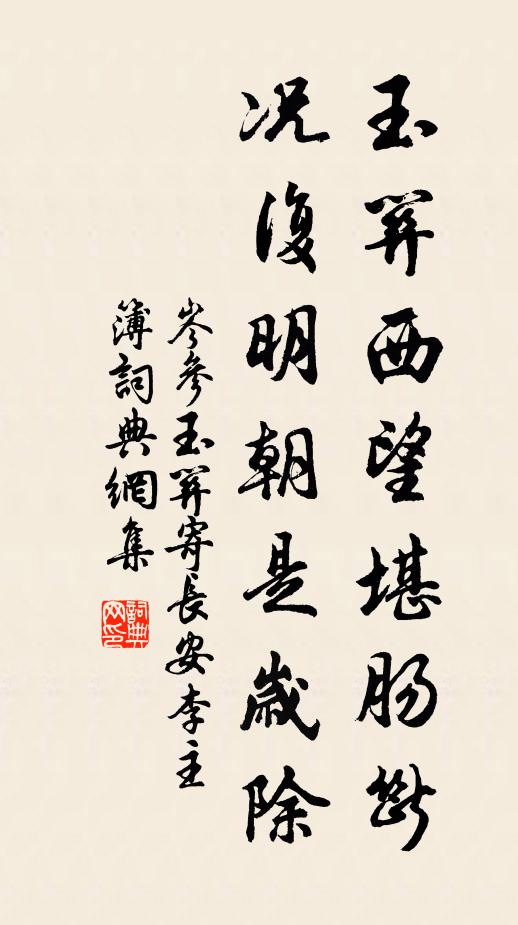 玉關西望堪腸斷
況復明朝是歲除
岑參玉關寄長安李主
簿詞典網集
詞典网印